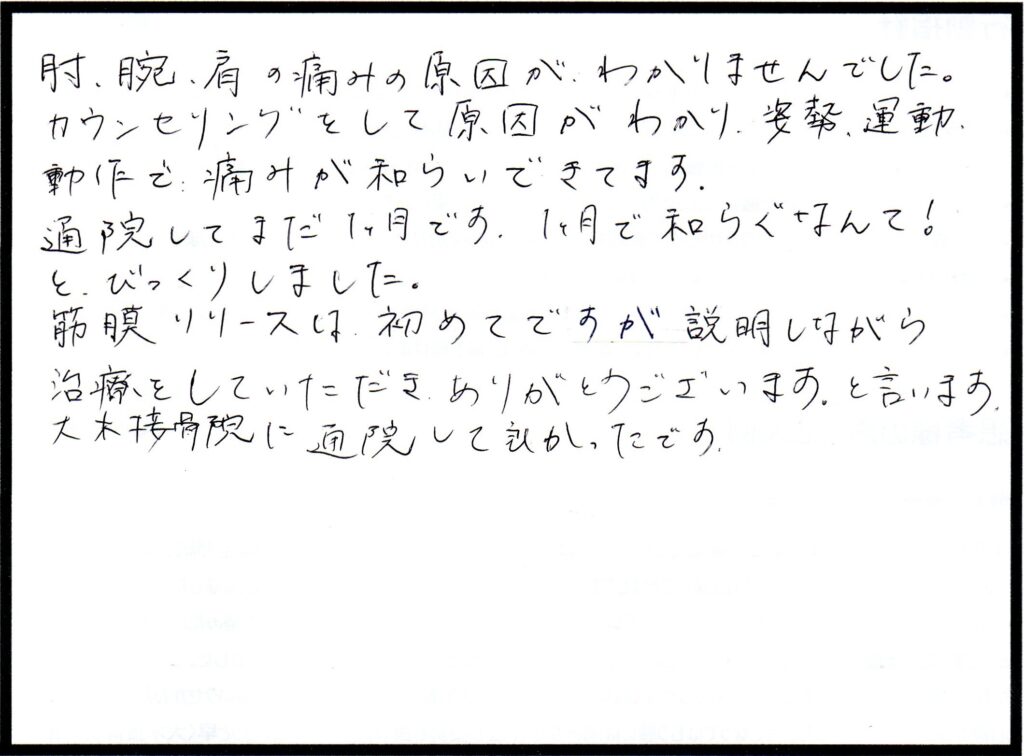 肘、腕、肩の痛みの原因が、わかりませんでした。
カウンセリングをして原因がわかり、姿勢、運動、
動作で、痛みが和らいできてます。
通院してまだ1ヶ月です。1ヶ月で和らぐなんて!
と、びっくりしました。
筋膜リリースは、初めてですが説明しながら
治療をしていただき、ありがとうございます。と言います。
大木接骨院に通院して良かったです。